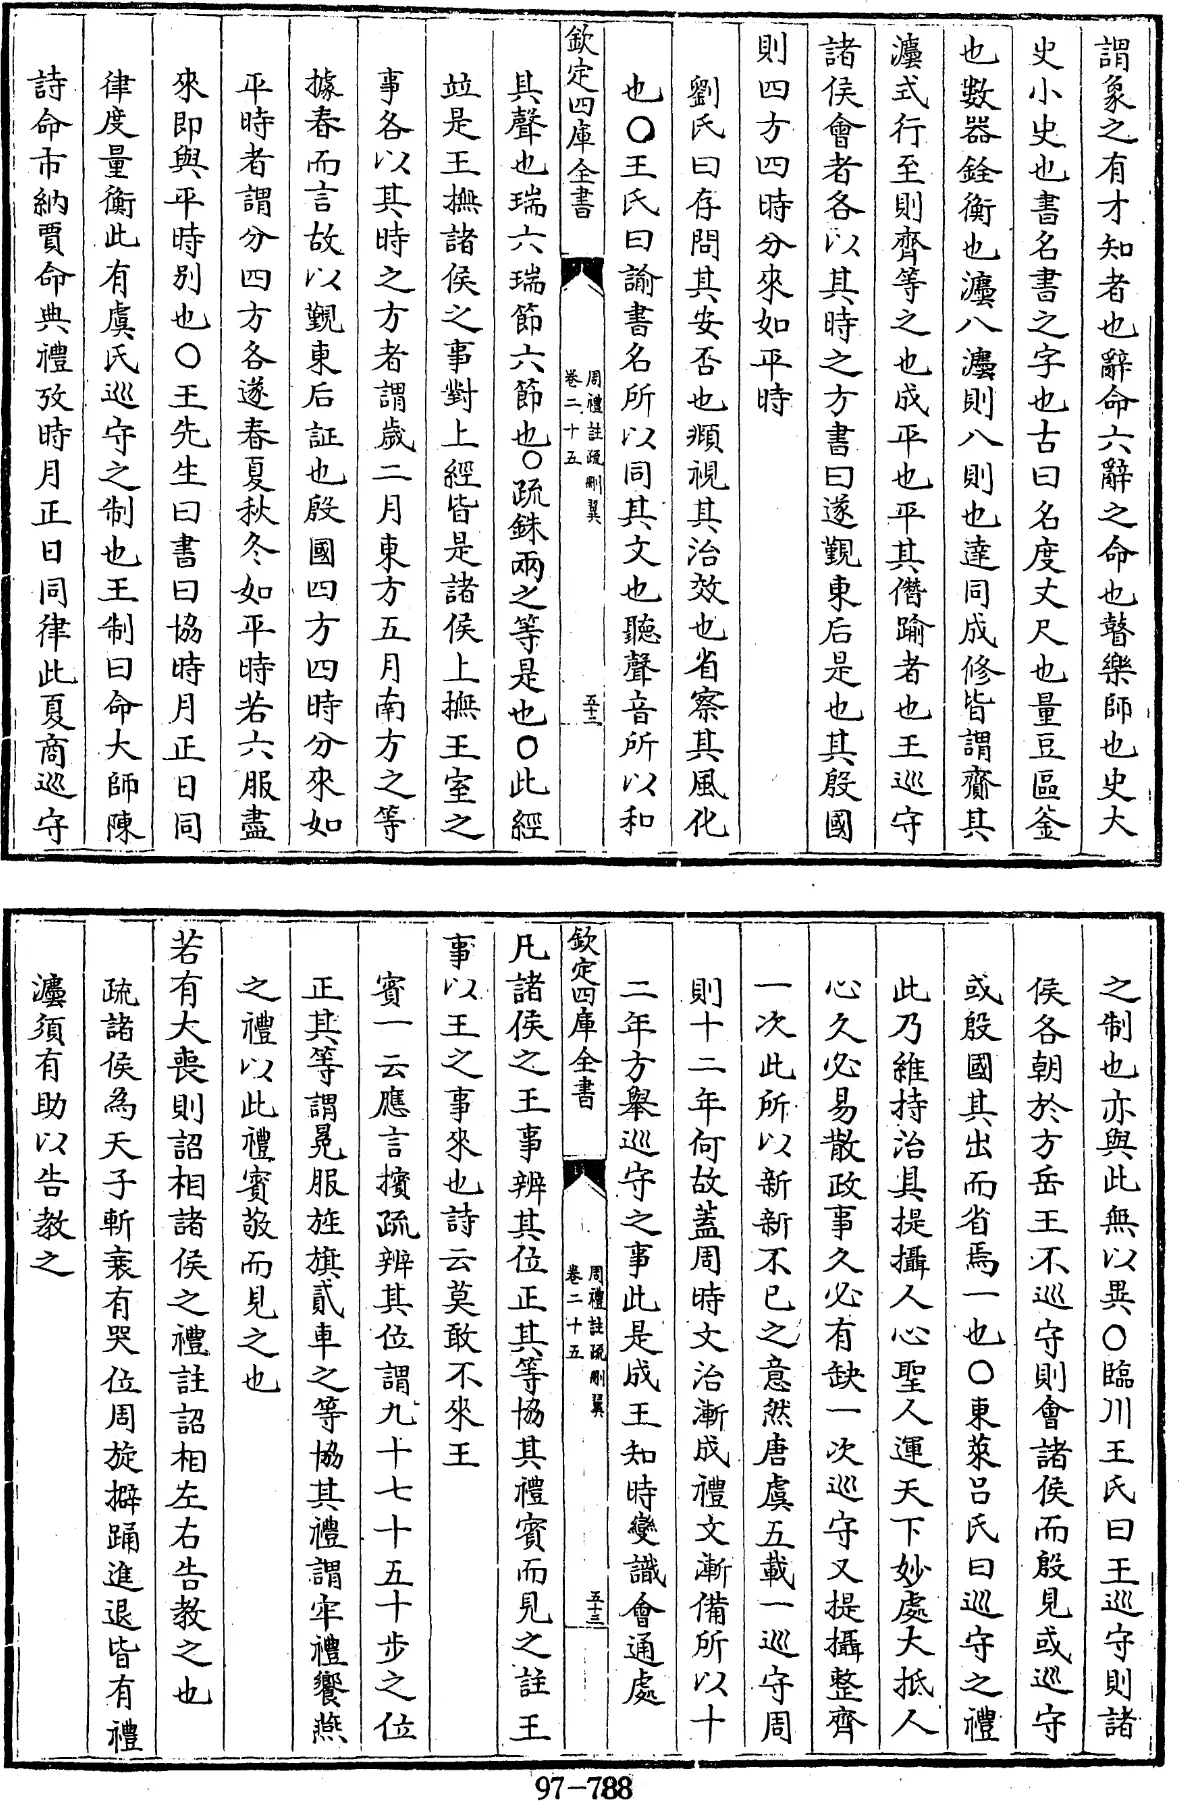 謂象之有才知者也辭命六辭之命也瞽樂師也史大
史小史也書名書之字也古曰名度丈尺也量豆區釜
也數器銓衡也灋八灋則八則也達同成修皆謂齎其
灋式行至則齊等之也成平也平其僭踰者也王巡守
諸侯會者各以其時之方書曰遂覲東后是也其殷國
則四方四時分來如平時
劉氏曰存問其安否也頫視其治效也省察其風化
也〇王氏曰諭書名所以同其文也聽聲音所以和
欽定四庫全書
周禮註疏刪翼
卷二十五
五十三
其聲也瑞六瑞節六節也〇疏銖兩之等是也〇此經
竝是王撫諸侯之事對上經皆是諸侯上撫王室之
事各以其時之方者謂歲二月東方五月南方之等
據春而言故以覲東后証也殷國四方四時分來如
平時者謂分四方各遂春夏秋冬如平時若六服盡
來即與平時別也〇王先生曰書曰協時月正日同
律度量衡此有虞氏巡守之制也王制曰命大師陳
詩命市納賈命典禮攷時月正日同律此夏商巡守
之制也亦與此無以異〇臨川王氏曰王巡守則諸
侯各朝於方岳王不巡守則會諸侯而殷見或巡守
或殷國其出而省焉一也〇東萊吕氏曰巡守之禮
此乃維持治具提攝人心聖人運天下妙處大抵人
心久必易散政事久必有缺一次巡守又提攝整齊
一次此所以新新不已之意然唐虞五載一巡守周
則十二年何故蓋周時文治漸成禮文漸備所以十
二年方舉巡守之事此是成王知時變識會通處
欽定四庫全書
周禮註疏刪翼
卷二十五
五十三
凡諸侯之王事辨其位正其等協其禮賓而見之註王
事以王之事來也詩云莫敢不來王
賓一云應言擯疏辨其位謂九十七十五十步之位
正其等謂冕服旌旗貳車之等協其禮謂牢禮饗燕
之禮以此禮賓敬而見之也
若有大喪則詔相諸侯之禮註詔相左右告教之也
疏諸侯為天子斬衰有哭位周旋擗踊進退皆有禮
灋須有助以告教之
97-788